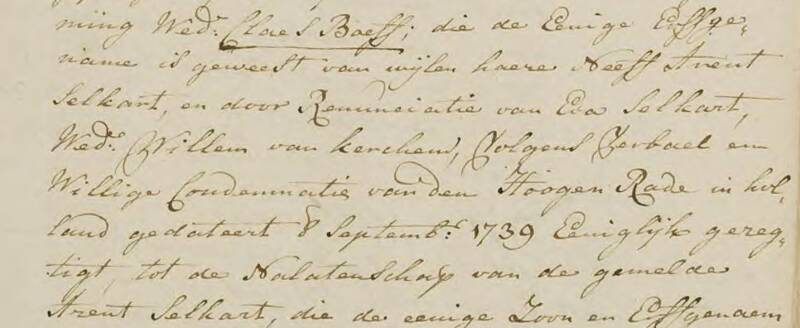 ming Wed: Claes Baeff; die de Eenige Erffge„
name is geweest van wijlen haere Neeff Arent
Selkart, en door Renunciatie van Eva Selkart,
Wed:e Willem van kerchem, Volgens Verbael en
Willige Condemnatie van den Hoogen Rade in hol„
land gedateert 8 Septemb: 1739 Eeniglijk gereg„
tigt, tot de Nalatenschap van de gemelde
Arent Selkart, die de eenige Zoon en Erffgenaem